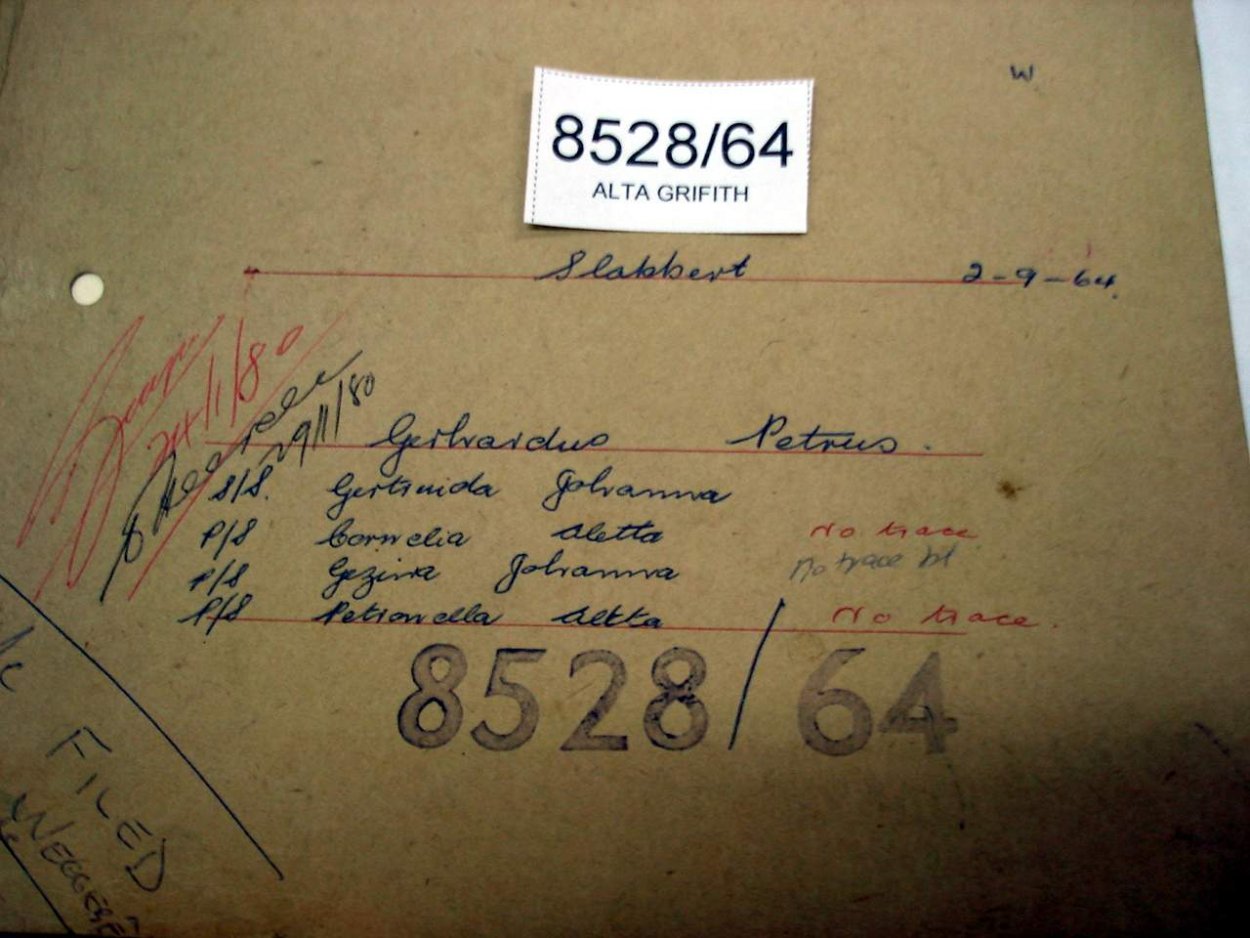 W
8528/64
ALTA GRIFITH
Slabbert 2-9-64.
24/1/80
29/1/80
Gerhardus Petrus.
S/S. Gertruida Johanna
P/S Cornelia Aletta No trace
P/S Gezina Johanna No trace
P/S Petronella Aletta / No trace.
8528/64
FILED
WEGGESÊ